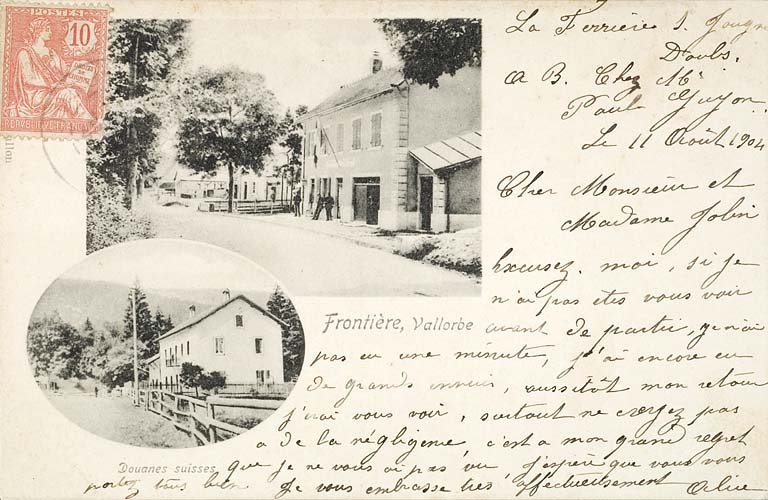 POSTES
10
RÉPUBLIQUE FRANÇAISE
La Ferrière s. Jougne
Doubs.
a B. Chez Mr
Paul Guyon
Le 11 Août 1904
Cher Monsieur et
Madame Jolin
Excusez. moi, si je
n'ai pas etes vous voir
avant de partir, je n'ai
pas eu une minute, j'ai encore eu
de grands ennuis, aussitôt mon retour
j'irai vous voir, surtout ne croyez pas
a de la négligence, c'est a mon grand regret
que je ne vous ai pas vu J'espère que vous vous
portez tous bien. Je vous embrasse très affectueusement
Alice
Frontière, Vallorbe
Douanes suisses